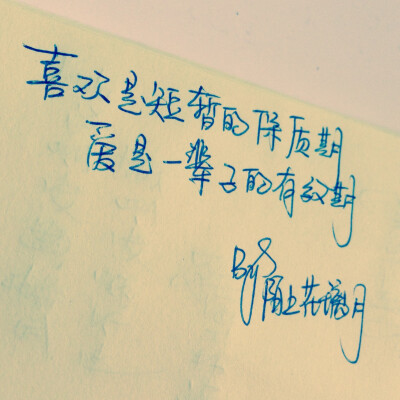 喜欢是短暂的保质期
爱是一辈子的有效期
By 陌上花月